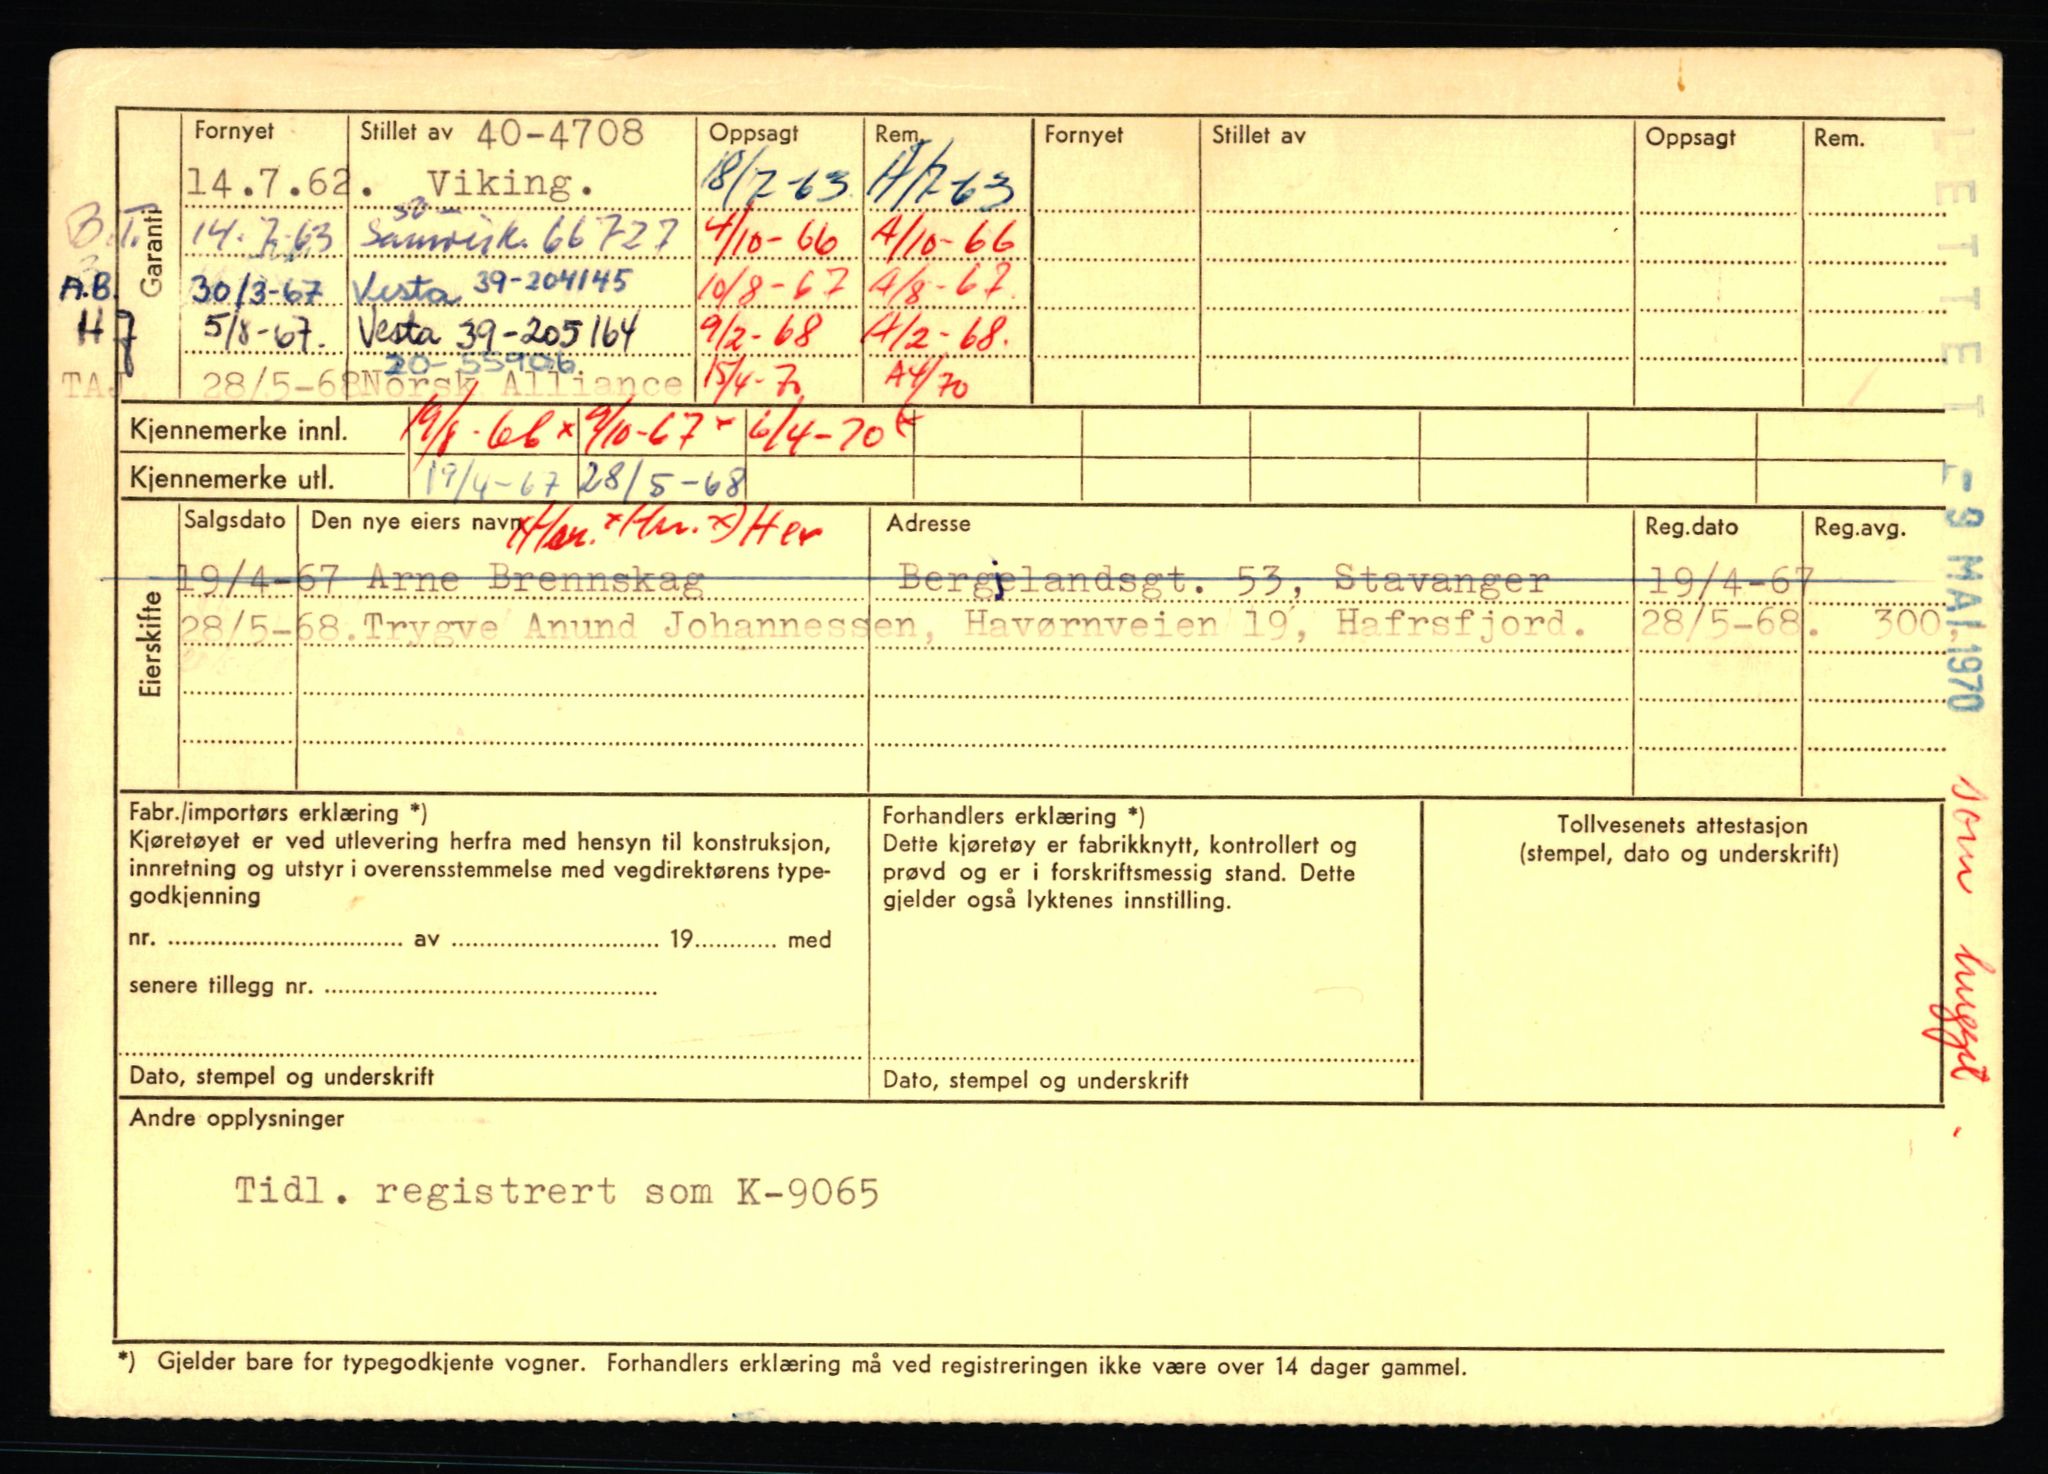 Fornyet Stillet av 40-4708 Oppsagt Rem. Fornyet Stillet av Oppsagt Rem.
14.7.62. Viking. 18/7-63. A/7-63
B.T. 14.7.63 66727 4/10-66 A/10-66
A.B. 30/3-67 Vesta 39-204145 10/8-67 A/8-67.
H J 5/8-67. Vesta 39-205164 9/2-68 A/2-68.
20-55906
TAJ 28/5-68 Norsk Alliance 15/4-70 A4/70
Garanti
Kjennemerke innl. 19/8-66 x 9/10-67 x 6/4-70 x
Kjennemerke utl. 19/4-67 28/5-68
Salgsdato Den nye eiers navn Adresse Reg.dato Reg.avg.
x Her
19/4-67 Arne Brennskag Bergjelandsgt. 53, Stavanger 19/4-67
28/5-68. Trygve Anund Johannessen, Havørnveien 19, Hafrsfjord. 28/5-68. 300,
Eierskifte
Fabr./importørs erklæring *)
Kjøretøyet er ved utlevering herfra med hensyn til konstruksjon,
innretning og utstyr i overensstemmelse med vegdirektørens type-
godkjenning
nr. av 19 med
senere tillegg nr.
Dato, stempel og underskrift
Forhandlers erklæring *)
Dette kjøretøy er fabrikknytt, kontrollert og
prøvd og er i forskriftsmessig stand. Dette
gjelder også lyktenes innstilling.
Dato, stempel og underskrift
Tollvesenets attestasjon
(stempel, dato og underskrift)
SLETTET - 9 MAI 1970
som hugget.
Andre opplysninger
Tidl. registrert som K-9065
*) Gjelder bare for typegodkjente vogner. Forhandlers erklæring må ved registreringen ikke være over 14 dager gammel.